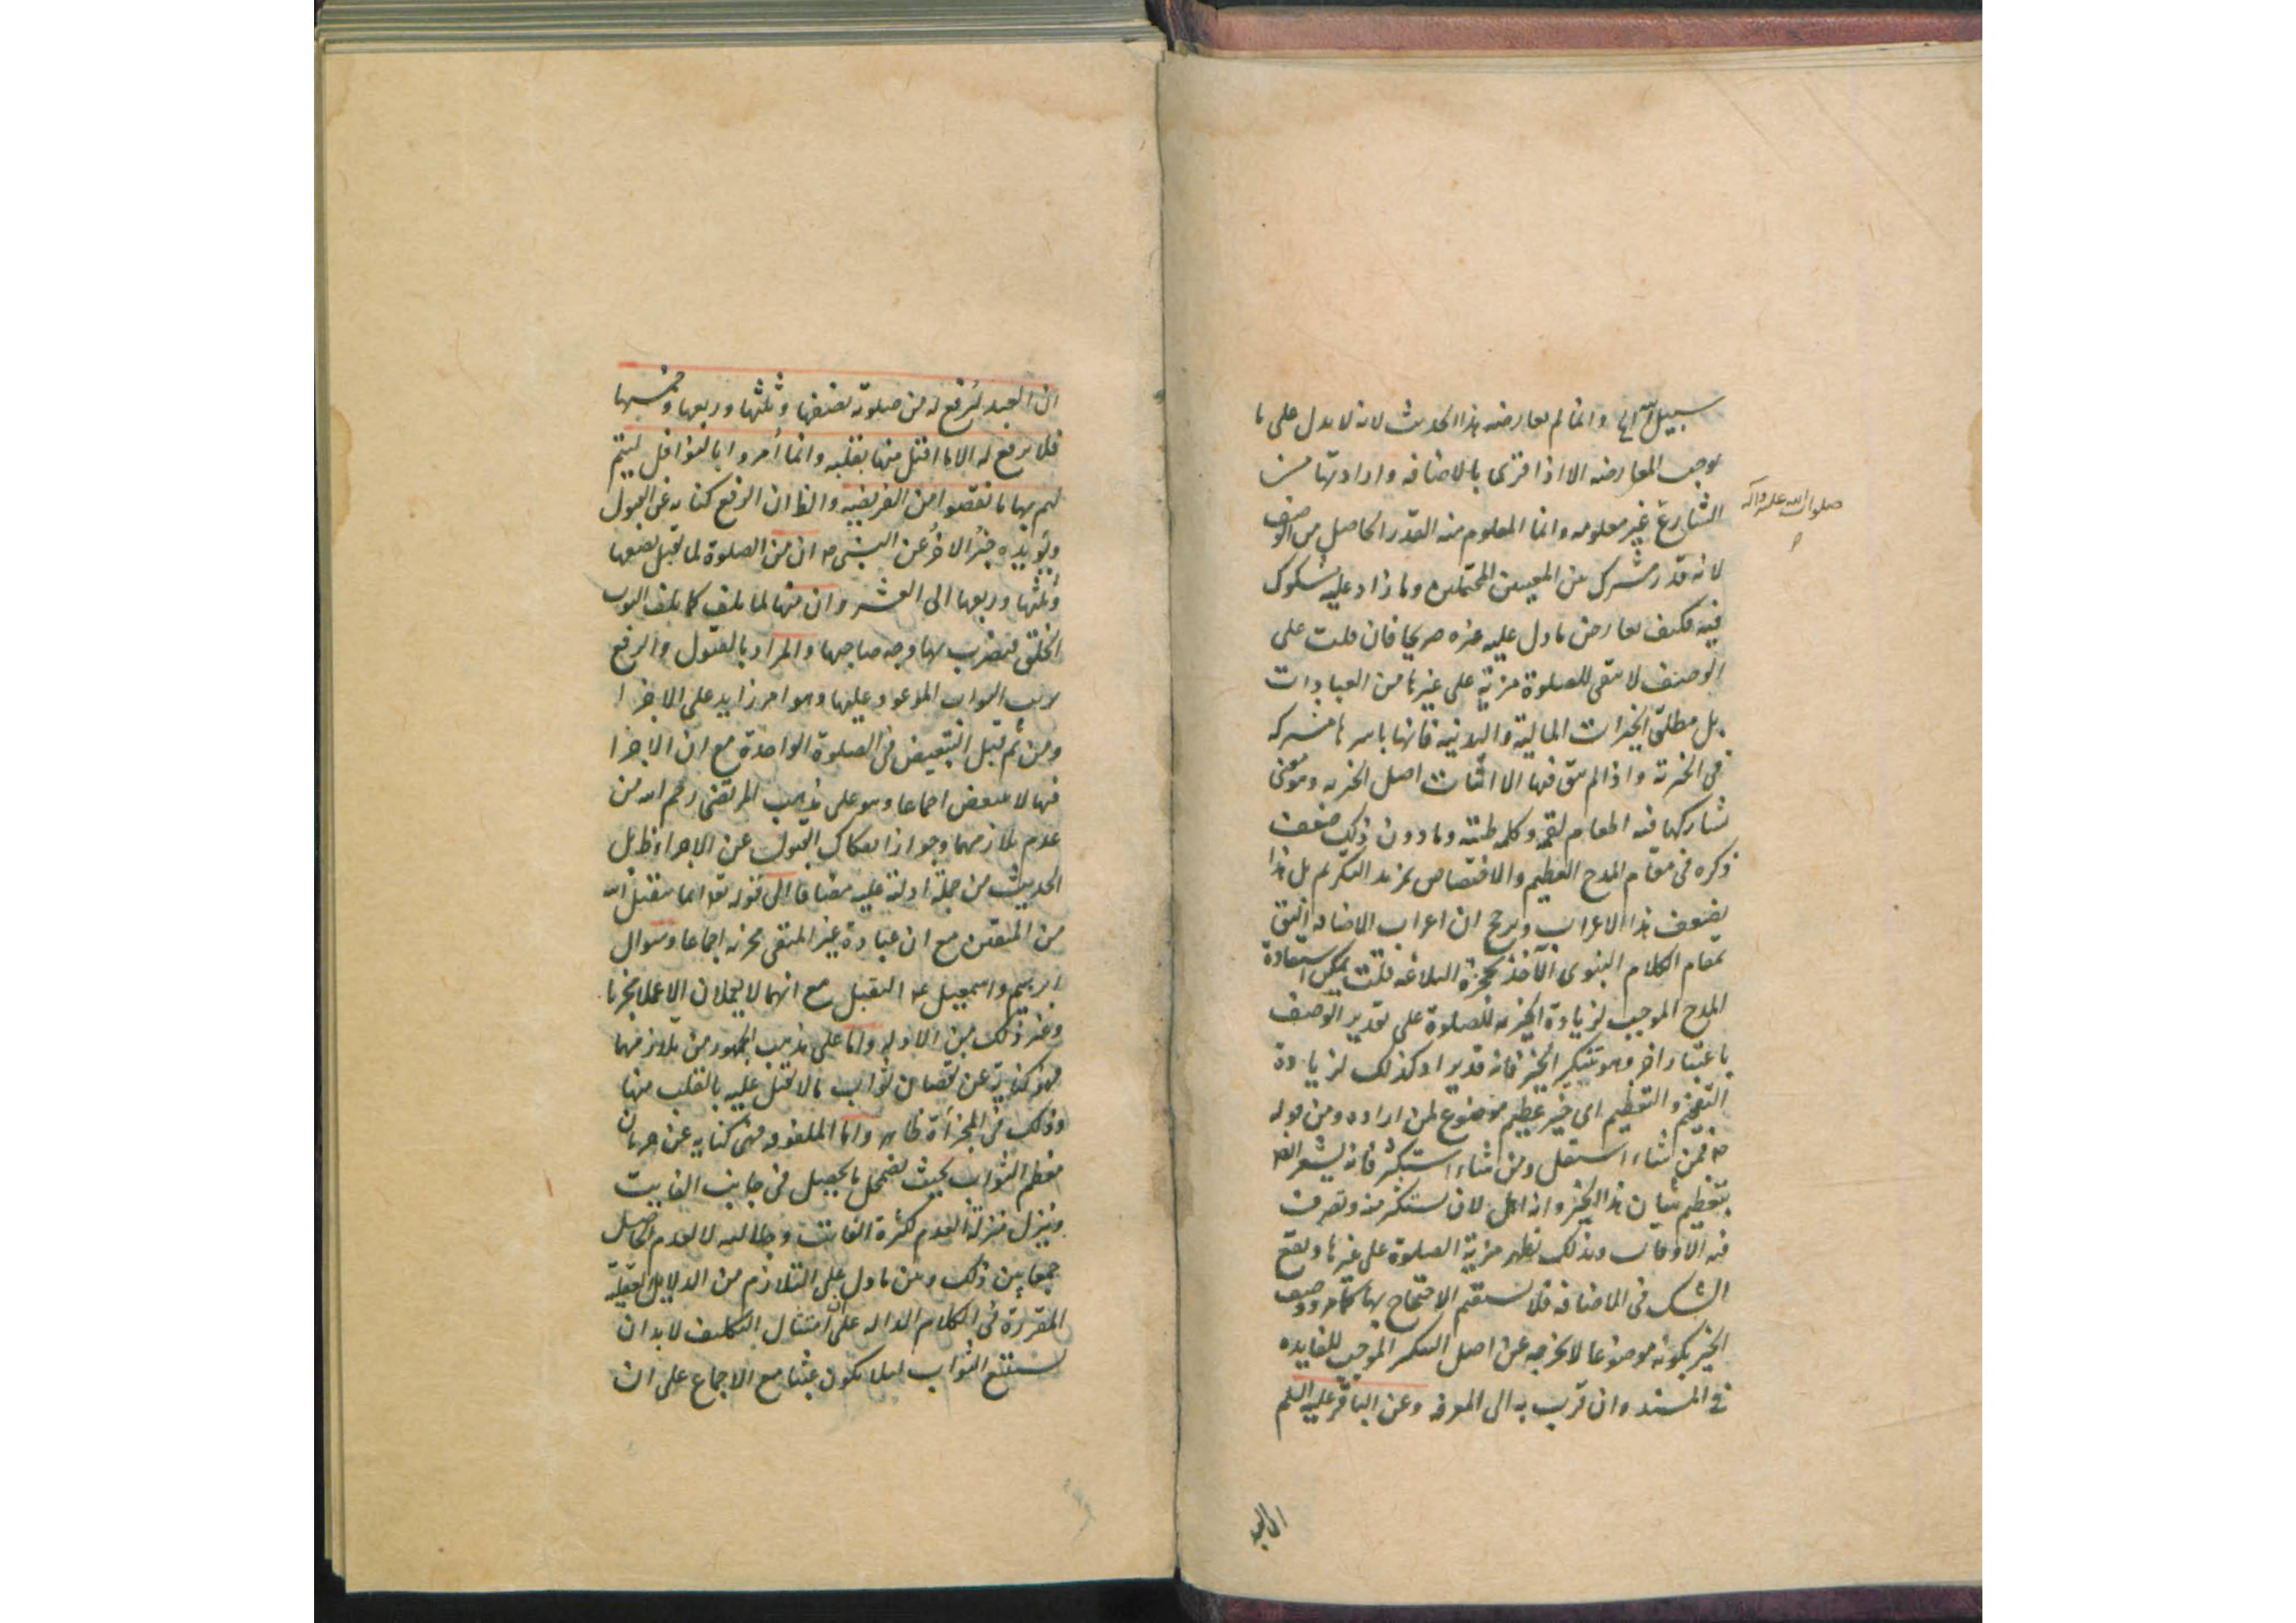 سبيل الله اى وانما لم يعارضه هذا الحديث لانه لا يدل على ما
يوجب المعارضه الا اذا قرى بالاضافه وارادتها من
الشارع غير معلومه وانما المعلوم منه القدر الحاصل من الوصف
صلوات الله عليه وآله
لانه قدر مشترك بين المعنيين المحتملين وما زاد عليه مشكوك
فيه فكيف يعارض ما دل عليه غيره صريحا فان قلت على
الوصف لا يبقى للصلوة مزية على غيرها من العبادات
بل مطلق الخيرات المالية والبدنية فانها باسرها مشتركه
فى الخيرية واذا لم يبق فيها الا اثبات اصل الخيريه وهو معنى
تشاركها فيه اطعام لقمه وكلمه طيبه وما دون ذلك ضعف
ذكره فى مقام المدح العظيم والاختصاص بمزيد التكريم بل هذا
يضعف هذا الاعراب ويرجح ان اعراب الاضافه اليق
بمقام الكلام النبوى الآخذ بحجزة البلاغه قلت يمكن استفادة
المدح الموجب لزيادة الخيريه للصلوة على تقدير الوصف
باعتبار اخر وهو تنكير الخير فانه قد يراد كذلك لزيادة
التفخيم والتعظيم اى خير عظيم موضوع لمن اراده ومن قوله
ص فمن شاء استقل ومن شاء استكثر فانه يشعر ايضا
بتعظيم شان هذا الخير وانه اهل لان يستكثر منه وتصرف
فيه الاوقات وبذلك تظهر مزية الصلوة على غيرها ويقع
الشك فى الاضافه فلا يستقيم الاحتجاج بها كما مر ووصف
الخير بكونه موضوعا لا يخرجه عن اصل التنكير الموجب للفايده
فى المسند وان قرب به الى المعرفه وعن الباقر عليه السلم
ان العبد
ان العبد ليرفع له من صلوته نصفها وثلثها وربعها وخمسها
فلا يرفع له الا ما اقبل منها بقلبه وانما أمروا بالنوافل ليتم
لهم بها ما نقصوا من الفريضه والظ ان الرفع كنايه عن القبول
ويؤيده خبر الاخر عن النبى ص ان من الصلوة لما تقبل نصفها
وثلثها وربعها الى العشر وان منها لما يلف كما يلف الثوب
الخلق فيضرب بها وجه صاحبها والمراد بالقبول والرفع
ترتب الثواب الموعود عليها وهو امر زايد على الاجزا
ومن ثم قبل التبعيض فى الصلوة الواحدة مع ان الاجزا
فيها لا يتبعض اجماعا وهو على مذهب المرتضى رحمه الله من
عدم تلازمهما وجواز انفكاك القبول عن الاجزا وظ بل
الحديث من جملة ادلة عليه مضافا الى قوله تع انما يتقبل الله
من المتقين مع ان عبادة غير المتقى مجزيه اجماعا وسوال
ابرهيم واسمعيل ع التقبل مع انهما لا يعملان الا عملا مجزيا
وغير ذلك من الادله واما على مذهب الجمهور من تلازمهما
فهو كناية عن نقصان ثواب ما لا يقبل عليه بالقلب منها
وذلك فى المجزأة ظاهر واما الملفوفه فهى كنايه عن حرمان
معظم الثواب بحيث يضمحل ما يحصل فى جانب الفايت
وينزل منزلة العدم لكثرة الفايت وجلالته لا لعدم الحاصل
جمعا بين ذلك وبين ما دل على التلازم من الدلايل العقليه
المقررة فى الكلام الداله على ان امتثال التكليف لا بد ان
يستتبع الثواب ليلا يكون عبثا مع الاجماع على ان